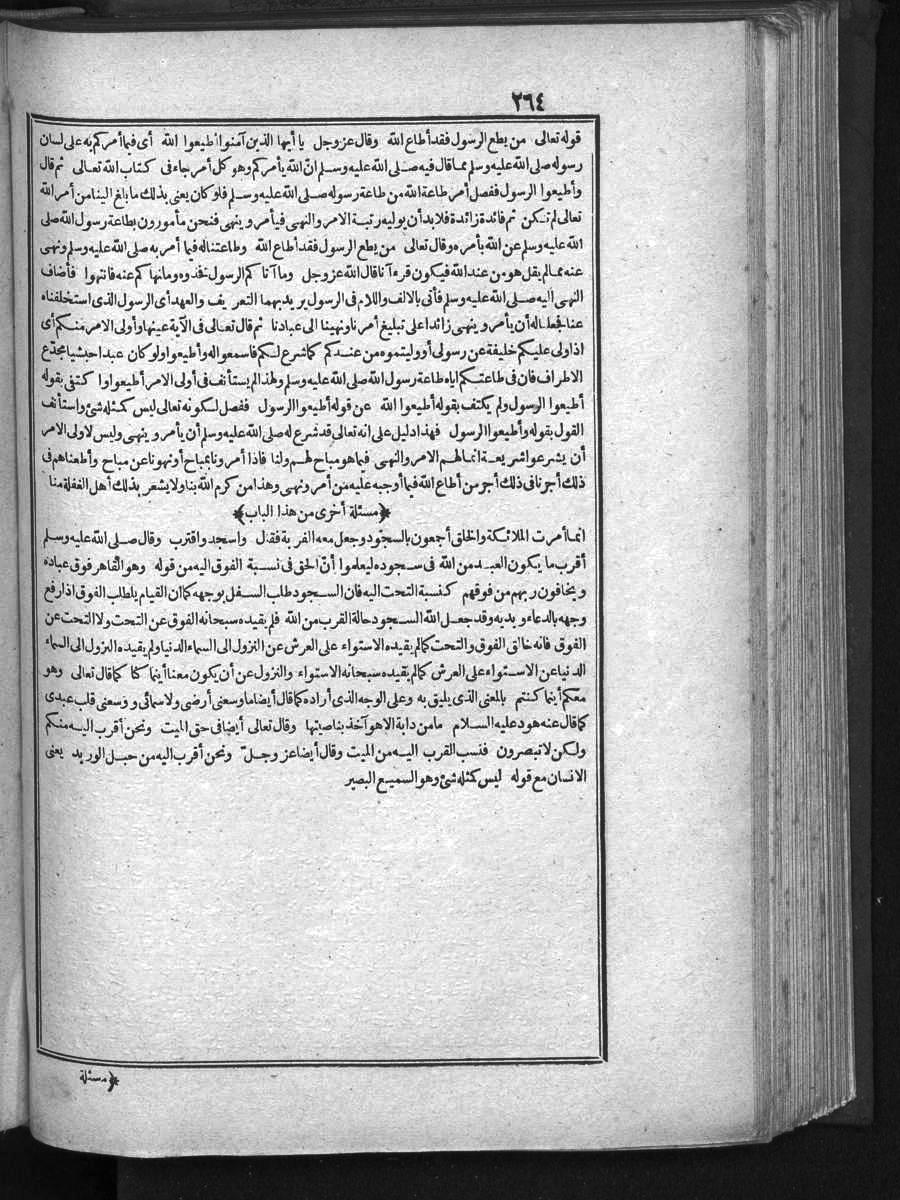 ٢٦٤
قوله تعالى من يطع الرسول فقد أطاع الله وقال عز وجل يا أيها الذين آمنوا أطيعوا الله أى فيما أمركم به على لسان
رسوله صلى الله عليه وسلم مما قال فيه صلى الله عليه وسلم انّ الله يأمركم وهو كل أمر جاء فى كتاب الله تعالى ثم قال
وأطيعوا الرسول ففصل أمر طاعة الله من طاعة رسوله صلى الله عليه وسلم فلو كان يعنى بذلك ما بلغ الينا من أمر الله
تعالى لم تكن ثم فائدة زائدة فلا بد أن يوليه رتبة الامر والنهى فيأمر وينهى فنحن مأمورون بطاعة رسول الله صلى
الله عليه وسلم عن الله بأمره وقال تعالى من يطع الرسول فقد أطاع الله وطاعتنا له فيما أمر به صلى الله عليه وسلم ونهى
عنه مما لم يقل هو من عند الله فيكون قرءآنا قال الله عز وجل وما آتاكم الرسول فخذوه وما نهاكم عنه فانتهوا فأضاف
النهى اليه صلى الله عليه وسلم فأتى بالالف واللام فى الرسول يريد بهما التعريف والعهد أى الرسول الذى استخلفناه
عنا فجعلنا له أن يأمر وينهى زائدا على تبليغ أمرنا ونهينا الى عبادنا ثم قال تعالى فى الآية عينها وأولى الامر منكم أى
اذا ولى عليكم خليفة عن رسولى أو وليتموه من عندكم كما شرع لكم فاسمعوا له وأطيعوا ولو كان عبدا حبشيا مجدّع
الاطراف فان فى طاعتكم اياه طاعة رسول الله صلى الله عليه وسلم ولهذا لم يستأنف فى أولى الامر أطيعوا واكتفى بقوله
أطيعوا الرسول ولم يكتف بقوله أطيعوا الله عن قوله أطيعوا الرسول ففصل لكونه تعالى ليس كمثله شئ واستأنف
القول بقوله وأطيعوا الرسول فهذا دليل على انه تعالى قد شرع له صلى الله عليه وسلم أن يأمر وينهى وليس لاولى الامر
أن يشرعوا شريعة انما لهم الامر والنهى فيما هو مباح لهم ولنا فاذا أمرونا بمباح أو نهونا عن مباح وأطعناهم فى
ذلك أجرنا فى ذلك أجر من أطاع الله فيما أوجبه عليه من أمر ونهى وهذا من كرم الله بنا ولا يشعر بذلك أهل الغفلة منا
﴿مسئلة أخرى من هذا الباب﴾
انما أمرت الملائكة والخلق أجمعون بالسجود وجعل معه القربة فقال واسجد واقترب وقال صلى الله عليه وسلم
أقرب ما يكون العبد من الله فى سجوده ليعلموا أنّ الحق فى نسبة الفوق اليه من قوله وهو القاهر فوق عباده
ويخافون ربهم من فوقهم كنسبة التحت اليه فان السجود طلب السفل بوجهه كما ان القيام يطلب الفوق اذا رفع
وجهه بالدعاء ويديه وقد جعل الله السجود حالة القرب من الله فلم يقيده سبحانه الفوق عن التحت ولا التحت عن
الفوق فانه خالق الفوق والتحت كما لم يقيده الاستواء على العرش عن النزول الى السماء الدنيا ولم يقيده النزول الى السماء
الدنيا عن الاستواء على العرش كما لم يقيده سبحانه الاستواء والنزول عن أن يكون معنا أينما كنا كما قال تعالى وهو
معكم أينما كنتم بالمعنى الذى يليق به وعلى الوجه الذى أراده كما قال أيضا ما وسعنى أرضى ولا سمائى ووسعنى قلب عبدى
كما قال عنه هود عليه السلام ما من دابة الا هو آخذ بناصيتها وقال تعالى أيضا فى حق الميت ونحن أقرب اليه منكم
ولكن لا تبصرون فنسب القرب اليه من الميت وقال أيضا عز وجلّ ونحن أقرب اليه من حبل الوريد يعنى
الانسان مع قوله ليس كمثله شئ وهو السميع البصير
﴿مسئلة